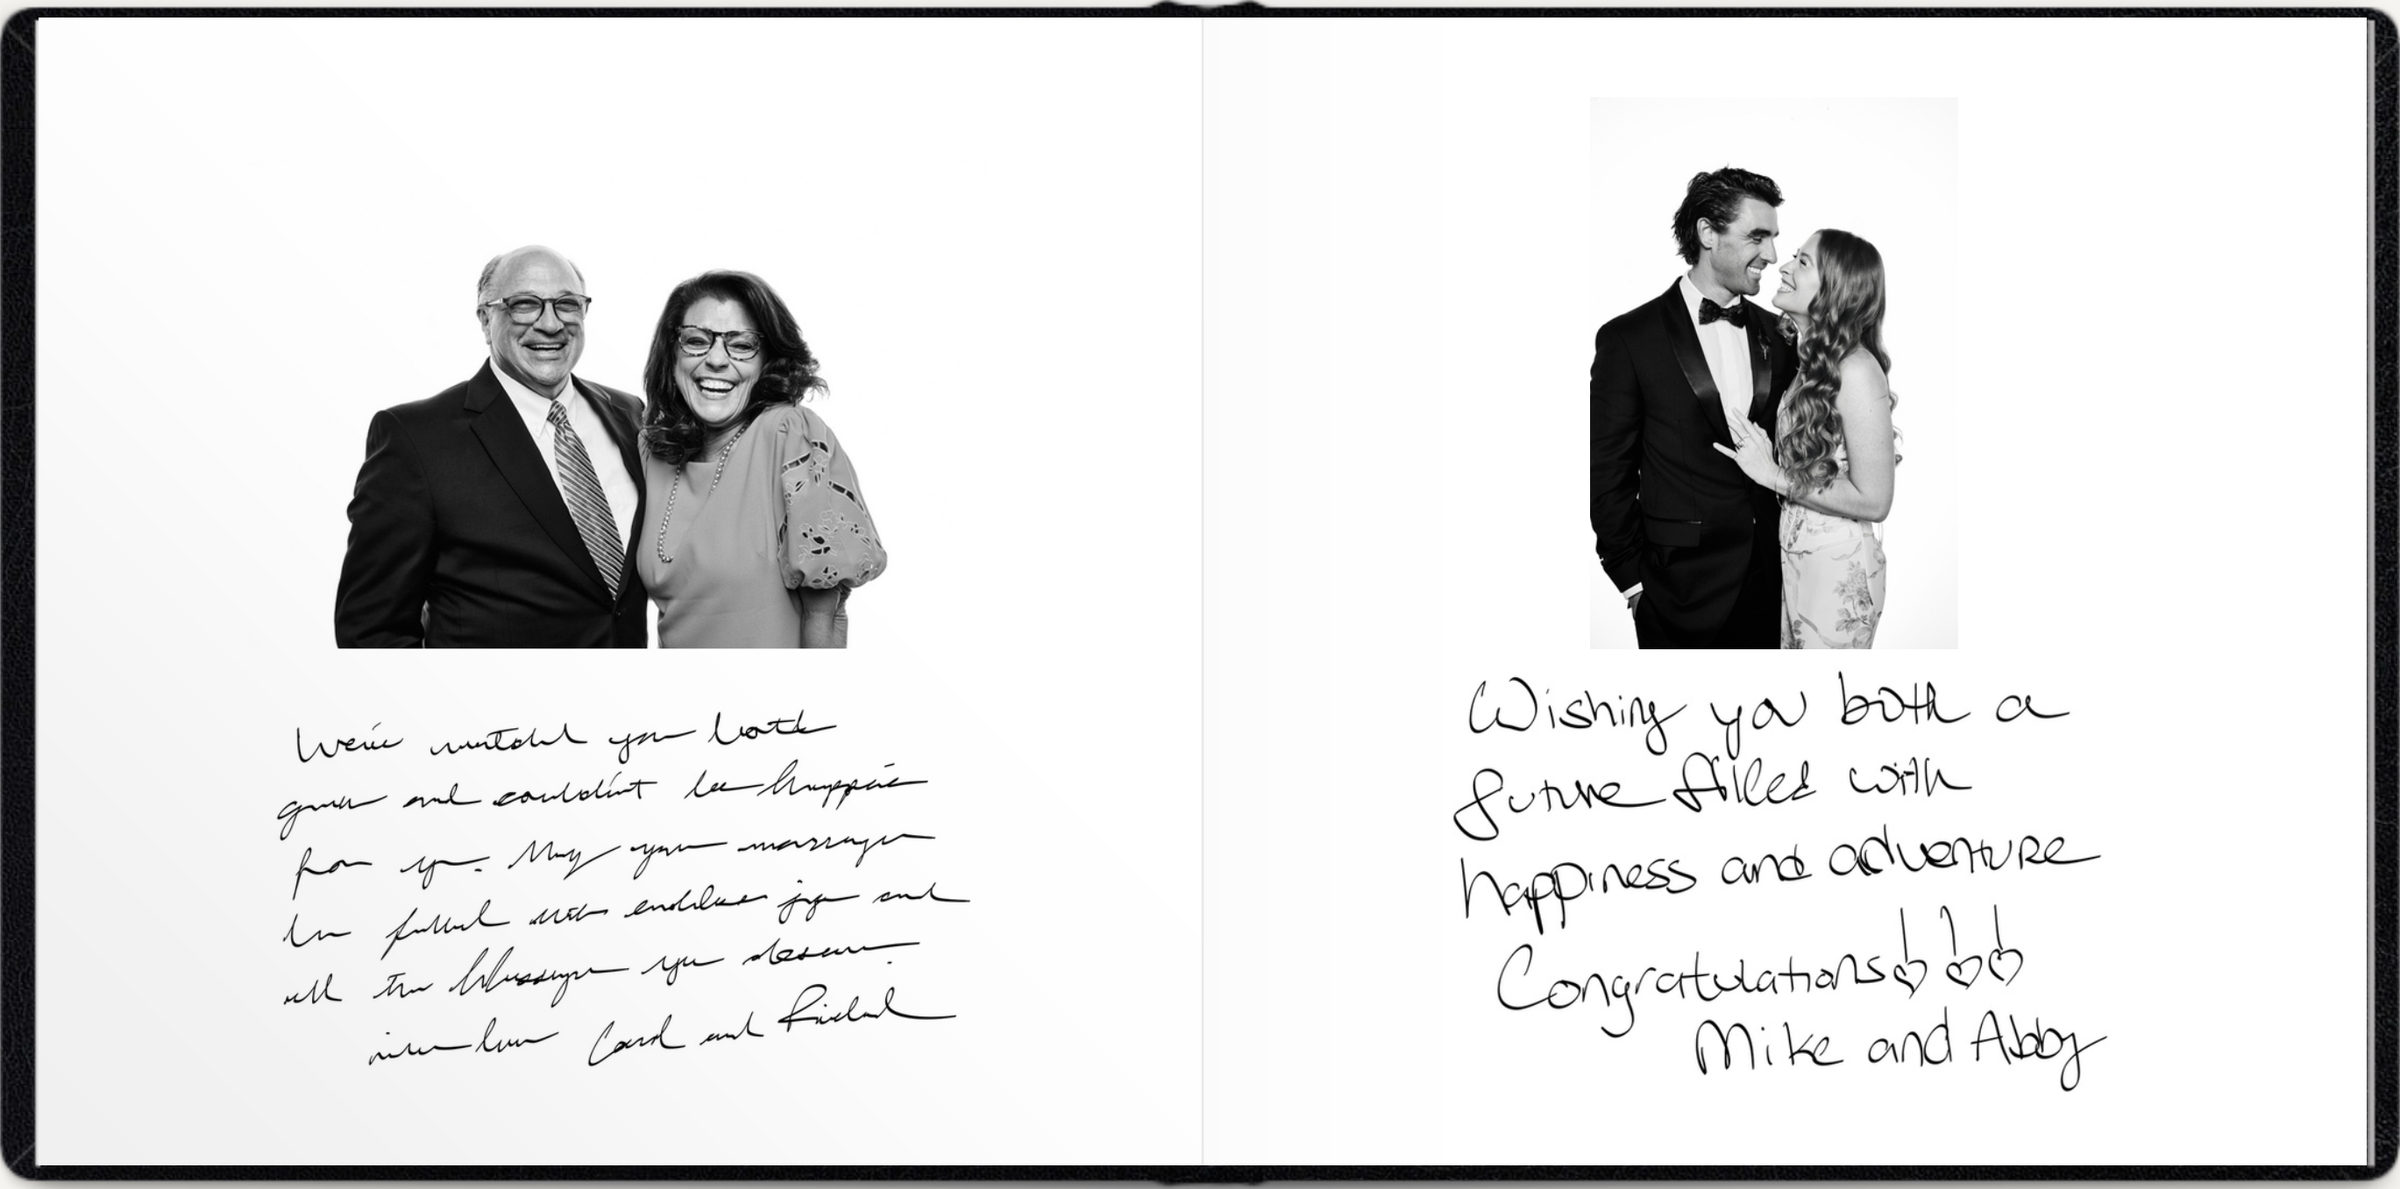 We've watched you both
grow and couldn't be happier
for you. May your marriage
be filled with endless joy and
all the blessings you deserve.
love Carol and Richard
Wishing you both a
future filled with
happiness and adventure
Congratulations!!!
Mike and Abby